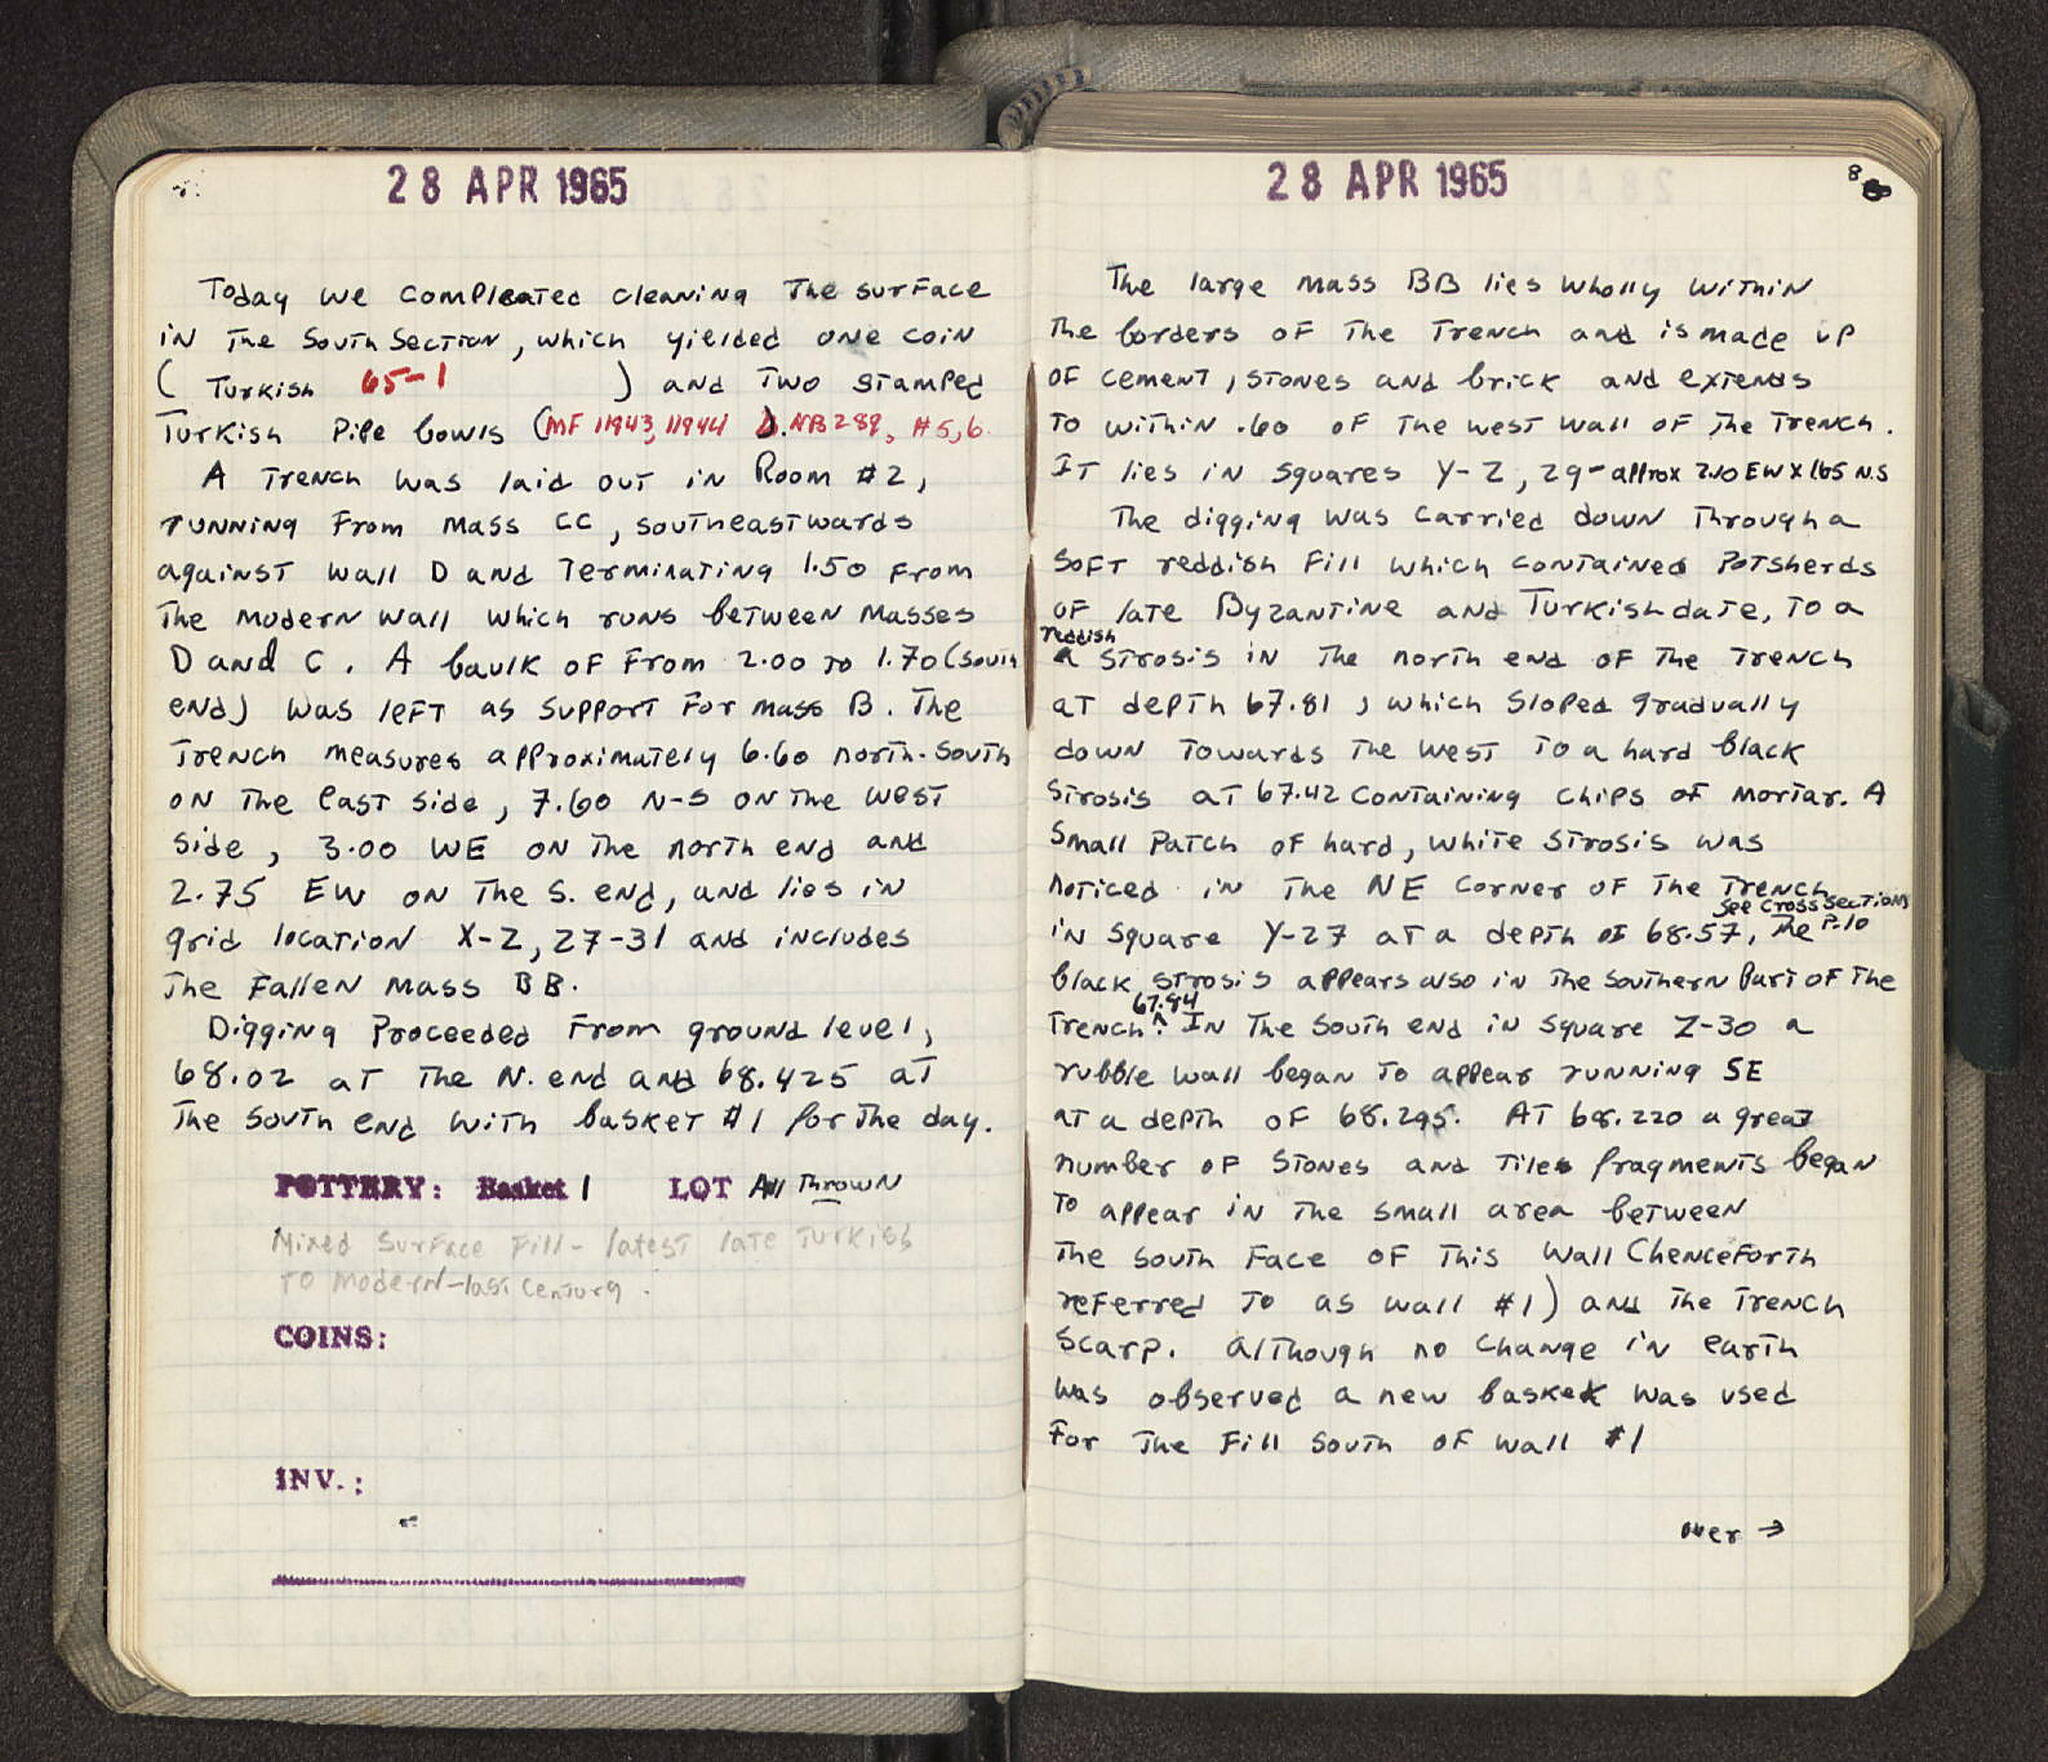 28 APR 1965
Today we compleated cleaning the surface
in the South Section, which yielded one coin
( Turkish 65-1 ) and two stamped
Turkish Pipe bowls (MF 11943, 11944 ). NB 289, #5,6
A Trench was laid out in Room #2,
running from mass CC, southeastwards
against wall D and Terminating 1.50 from
The modern wall which runs between masses
D and C. A baulk of from 2.00 to 1.70 (south
end) was left as support for mass B. The
Trench measures approximately 6.60 north-south
on the east side, 7.60 N-S on the west
side, 3.00 WE on the north end and
2.75 EW on the S. end, and lies in
grid location X-Z, 27-31 and includes
the fallen mass BB.
Digging proceeded from ground level,
68.02 at the N. end and 68.425 at
the south end with basket #1 for the day.
POTTERY: Basket 1 LOT All Thrown
Mixed surface fill - latest late Turkish
to modern - last century.
COINS:
INV.:
28 APR 1965
8
The large mass BB lies wholly within
the borders of the Trench and is made up
of cement, stones and brick and extends
to within .60 of the west wall of the Trench.
It lies in squares Y-Z, 29 - approx 2.10 EW X 1.65 N.S
The digging was carried down through a
soft reddish fill which contained Potsherds
of late Byzantine and Turkish date, to a
reddish
strosis in the north end of the Trench
at depth 67.81, which sloped gradually
down towards the west to a hard black
strosis at 67.42 containing chips of mortar. A
small patch of hard, white strosis was
noticed in the NE corner of the Trench
see cross sections
in square Y-27 at a depth of 68.57, The P.10
black strosis appears also in the southern part of the
67.94
Trench. In the south end in square Z-30 a
rubble wall began to appear running SE
at a depth of 68.295. At 68.220 a great
number of stones and tile fragments began
to appear in the small area between
the south face of this wall (henceforth
referred to as wall #1) and the Trench
scarp. Although no change in earth
was observed a new basket was used
for the fill south of wall #1
over →